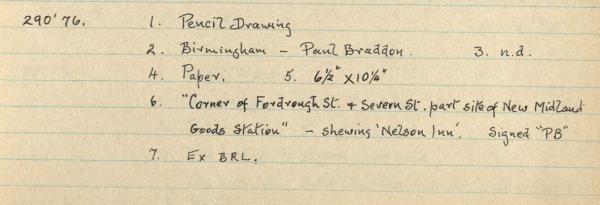 290'76. 1. Pencil Drawing
2. Birmingham – Paul Braddon. 3. n.d.
4. Paper. 5. 6½" x 10¼"
6. "Corner of Fordrough St. & Severn St. part site of New Midland
Goods Station" – shewing 'Nelson Inn'. Signed "PB"
7. Ex BRL.